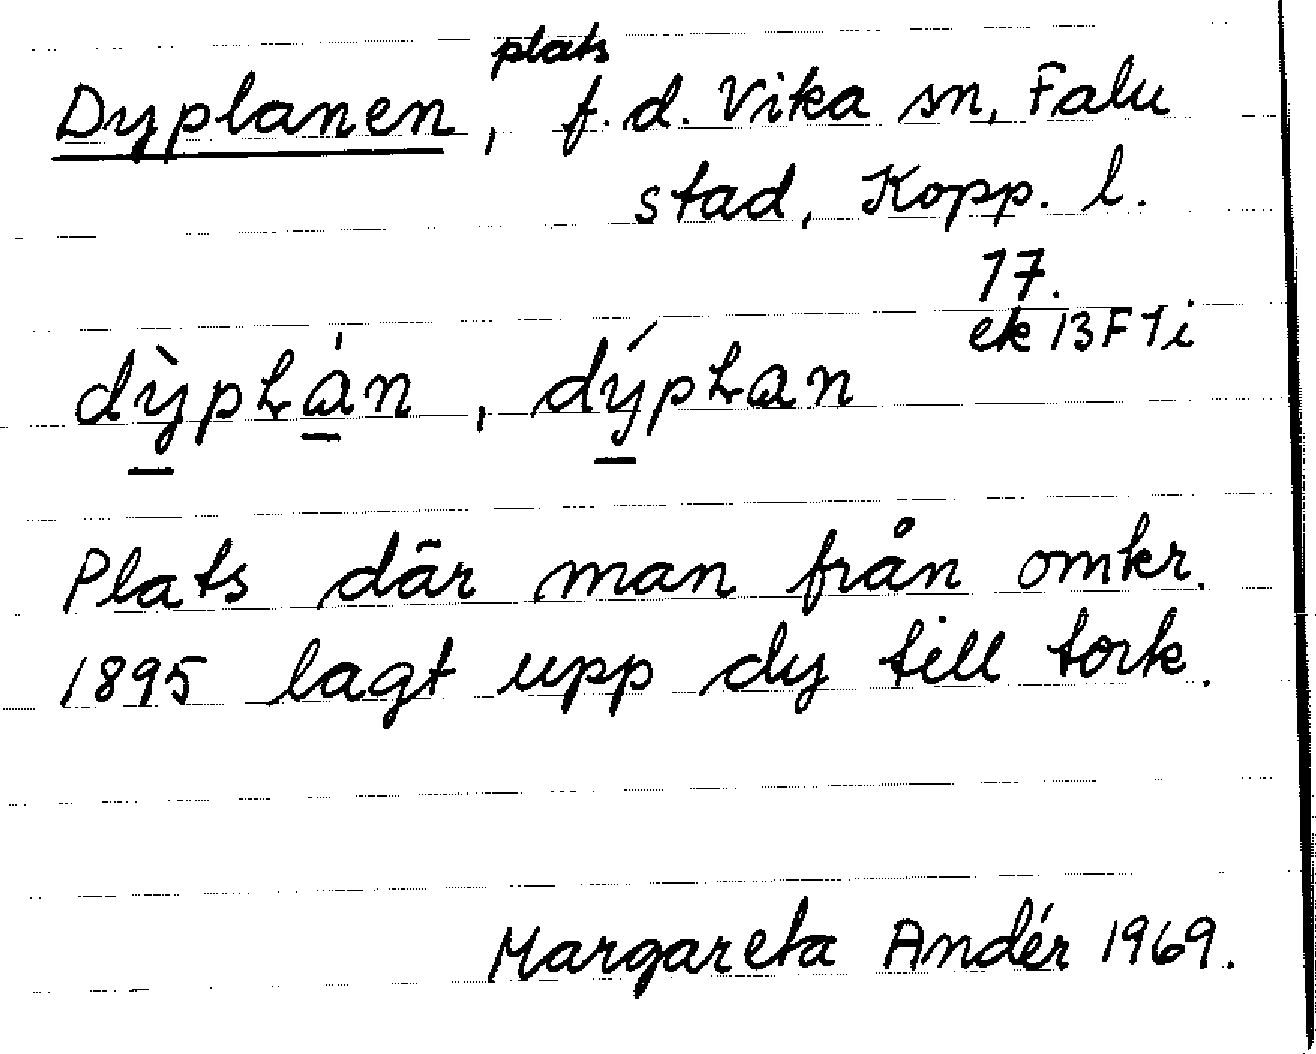 plats
Dyplanen, f.d. Vika sn, Falu
stad, Kopp. l.
17.
ek 13F7i
Plats där man från omkr.
1895 lagt upp dy till tork.
Margareta Andér 1969.